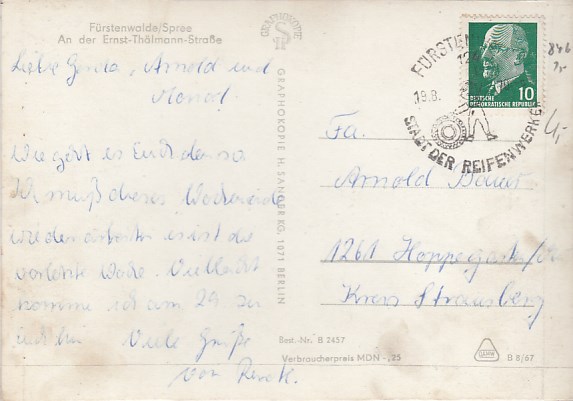 Fürstenwalde/Spree
An der Ernst-Thälmann-Straße
Liebe Gerda, Arnold und
wie geht es Euch denn so
Ich muß dieses Wochenende
wieder arbeiten es ist die
Woche. Vielleicht
komme ich am 29. zu
Euch hin Viele Grüße
von
GRAPHOKOPIE
GRAPHOKOPIE H. SANDER KG, 1071 BERLIN
FÜRSTEN
19.8.
STADT DER REIFENWERKE
10
DEUTSCHE
DEMOKRATISCHE REPUBLIK
Fa.
Arnold Bauer
1261 Hoppegarten
Kreis Strausberg
Best.-Nr. B 2457
Verbraucherpreis MDN -,25
B 8/67